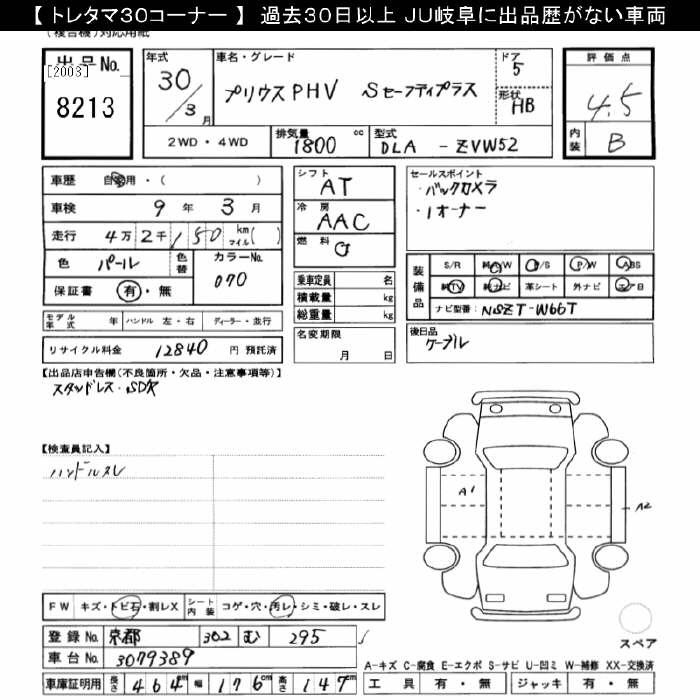 【 トレタマ30コーナー 】 過去30日以上 JU岐阜に出品歴がない車両
(複合機)対応用紙
出品No. [2003] 8213
年式 30/3月
車名・グレード プリウスPHV Sセーフティプラス
ドア 5
形状 HB
2WD ・ 4WD
排気量 1800 cc
型式 DLA - ZVW52
評価点 4.5
内装 B
車歴 自家用 ・( )
車検 9年 3月
走行 4万2千150 km マイル( )
色 パール 色替 カラーNo. 070
保証書 有・無
モデル年式 年 ハンドル 左・右 ディーラー・並行
リサイクル料金 12840 円 預託済
シフト AT
冷房 AAC
燃料 G
乗車定員 名
積載量 kg
総重量 kg
名変期限 月 日
セールスポイント
・バックカメラ
・1オーナー
装備品 S/R 純AW P/S P/W ABS
純TV 純ナビ 革シート 外ナビ エアB
ナビ型番: NSZT-W66T
後日品
ケーブル
【出品店申告欄(不良箇所・欠品・注意事項等)】
スタッドレス・SDR
【検査員記入】
ハンドルスレ
A1
A2
FW キズ・トビ石・割レX シート内装 コゲ・穴・汚レ・シミ・破レ・スレ
登録No. 京都 302 む 295
車台No. 3079389
車庫証明用 長さ 464cm 幅 176cm 高さ 147cm
スペア
A-キズ C-腐食 E-エクボ S-サビ U-凹ミ W-補修 XX-交換済
工具 有・無 ジャッキ 有・無